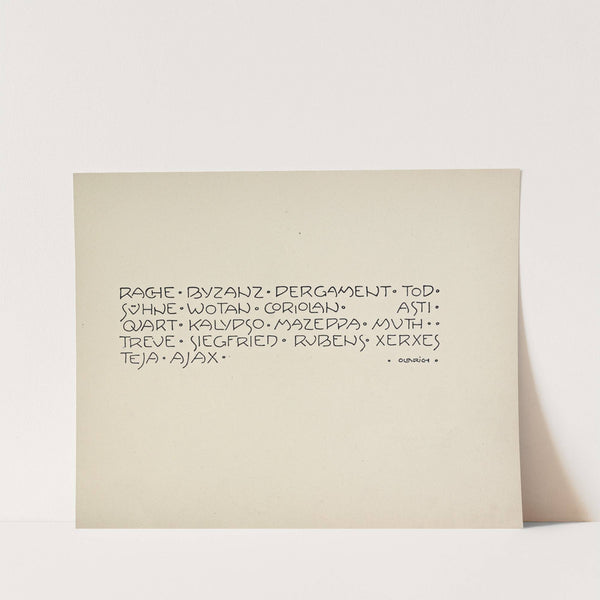 RACHE • BYZANZ • PERGAMENT • TOD •
SÜHNE • WOTAN • CORIOLAN • ASTI •
QUART • KALYPSO • MAZEPPA • MUTH • •
TREUE • SIEGFRIED • RUBENS • XERXES
TEJA • AJAX • • OLBRICH •